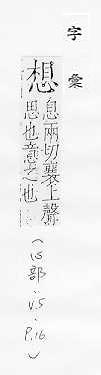 字彙
想
息兩切襄上聲
思也意之也
(心部:V.5.P.16)